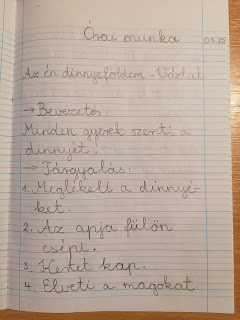 Órai munka 03.25
Az én dinnyeföldem - Vázlat
→ Bevezetés:
Minden gyerek szereti a
dinnyét!
→ Tárgyalás:
1. Meglékeli a dinnyé-
ket.
2. Az apja fülön
csípi.
3. Kertet kap.
4. Elveti a magokat.